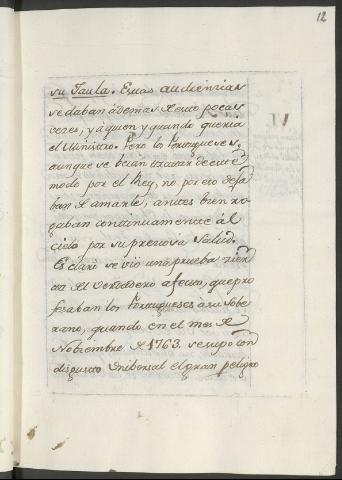 12
su Jaula. Estas audiencias
se daban ademas de esto pocas
veses, y á quien y quando queria
el Ministro. Pero los Portugueses,
aunque se veian tratar de este
modo por el Rey, no por eso deja
ban de amarle, antes bien ro
gaban continuamente ál
cielo por su preciosa salud.
Es claro se vió una prueba
del verdadero afecto, que pro
fesaban los Portugueses à su sobe
rano, quando en el mes de
Nobiembre de 1763. se supo con
disgusto unibersal el gran peligro